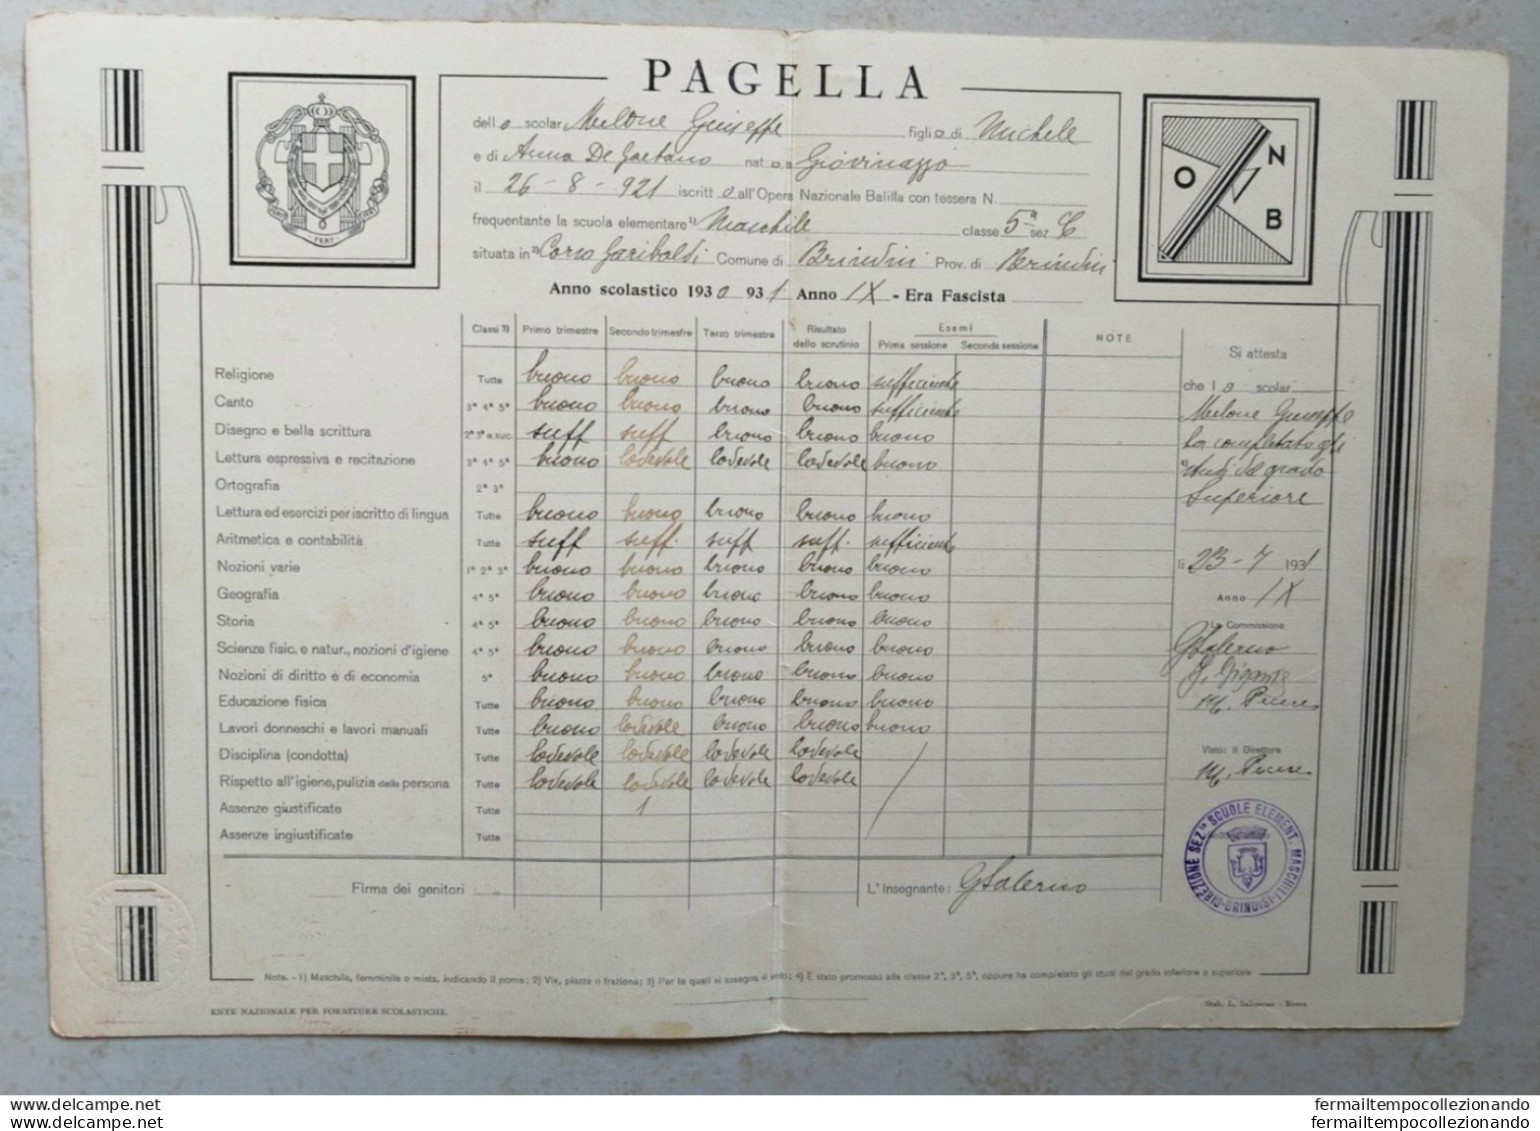 PAGELLA
dello scolar Melone Giuseppe figlio di Michele
e di Anna De Gaetano nato a Giovinazzo
il 26-8-921 iscritto all'Opera Nazionale Balilla con tessera N.
frequentante la scuola elementare 1) Maschile classe 5ª sez C
situata in 2) Corso Garibaldi Comune di Brindisi Prov. di Brindisi
Anno scolastico 1930 931 Anno IX - Era Fascista
FERT
O N B
Classi 3) Primo trimestre Secondo trimestre Terzo trimestre Risultato dello scrutinio Esami Prima sessione Seconda sessione NOTE
Religione Tutte buono buono buono buono sufficiente
Canto 3ª 4ª 5ª buono buono buono buono sufficiente
Disegno e bella scrittura 2ª 3ª e suc. suff suff buono buono buono
Lettura espressiva e recitazione 3ª 4ª 5ª buono lodevole lodevole lodevole buono
Ortografia 2ª 3ª
Lettura ed esercizi per iscritto di lingua Tutte buono buono buono buono buono
Aritmetica e contabilità Tutte suff suff. suff suff. sufficiente
Nozioni varie 1ª 2ª 3ª buono buono buono buono buono
Geografia 4ª 5ª buono buono buono buono buono
Storia 4ª 5ª buono buono buono buono buono
Scienze fisic. e natur., nozioni d'igiene 4ª 5ª buono buono buono buono buono
Nozioni di diritto e di economia 5ª buono buono buono buono buono
Educazione fisica Tutte buono buono buono buono buono
Lavori donneschi e lavori manuali Tutte buono lodevole buono buono buono
Disciplina (condotta) Tutte lodevole lodevole lodevole lodevole /
Rispetto all'igiene, pulizia della persona Tutte lodevole lodevole lodevole lodevole
Assenze giustificate Tutte 1 /
Assenze ingiustificate Tutte
Firma dei genitori L'Insegnante: G Salerno
Si attesta
che lo scolar
Melone Giuseppe
ha completato gli
4) studi del grado
Superiore
lì 23-7 1931
Anno IX
La Commissione
G Salerno
G. Gigante
M. Pecere
Visto: Il Direttore
M. Pecere
DIREZIONE SEZ. SCUOLE ELEMENT. MASCHILI-BRINDISI
Note. - 1) Maschile, femminile o mista, indicando il nome; 2) Via, piazza o frazione; 3) Per le quali si assegna il voto; 4) È stato promosso alla classe 2ª, 3ª, 5ª, oppure ha completato gli studi del grado inferiore o superiore
ENTE NAZIONALE PER FORNITURE SCOLASTICHE.
Stab. L. Salomone - Roma
delcampe.net
delcampe.net
fermailtempocollezionando
fermailtempocollezionando